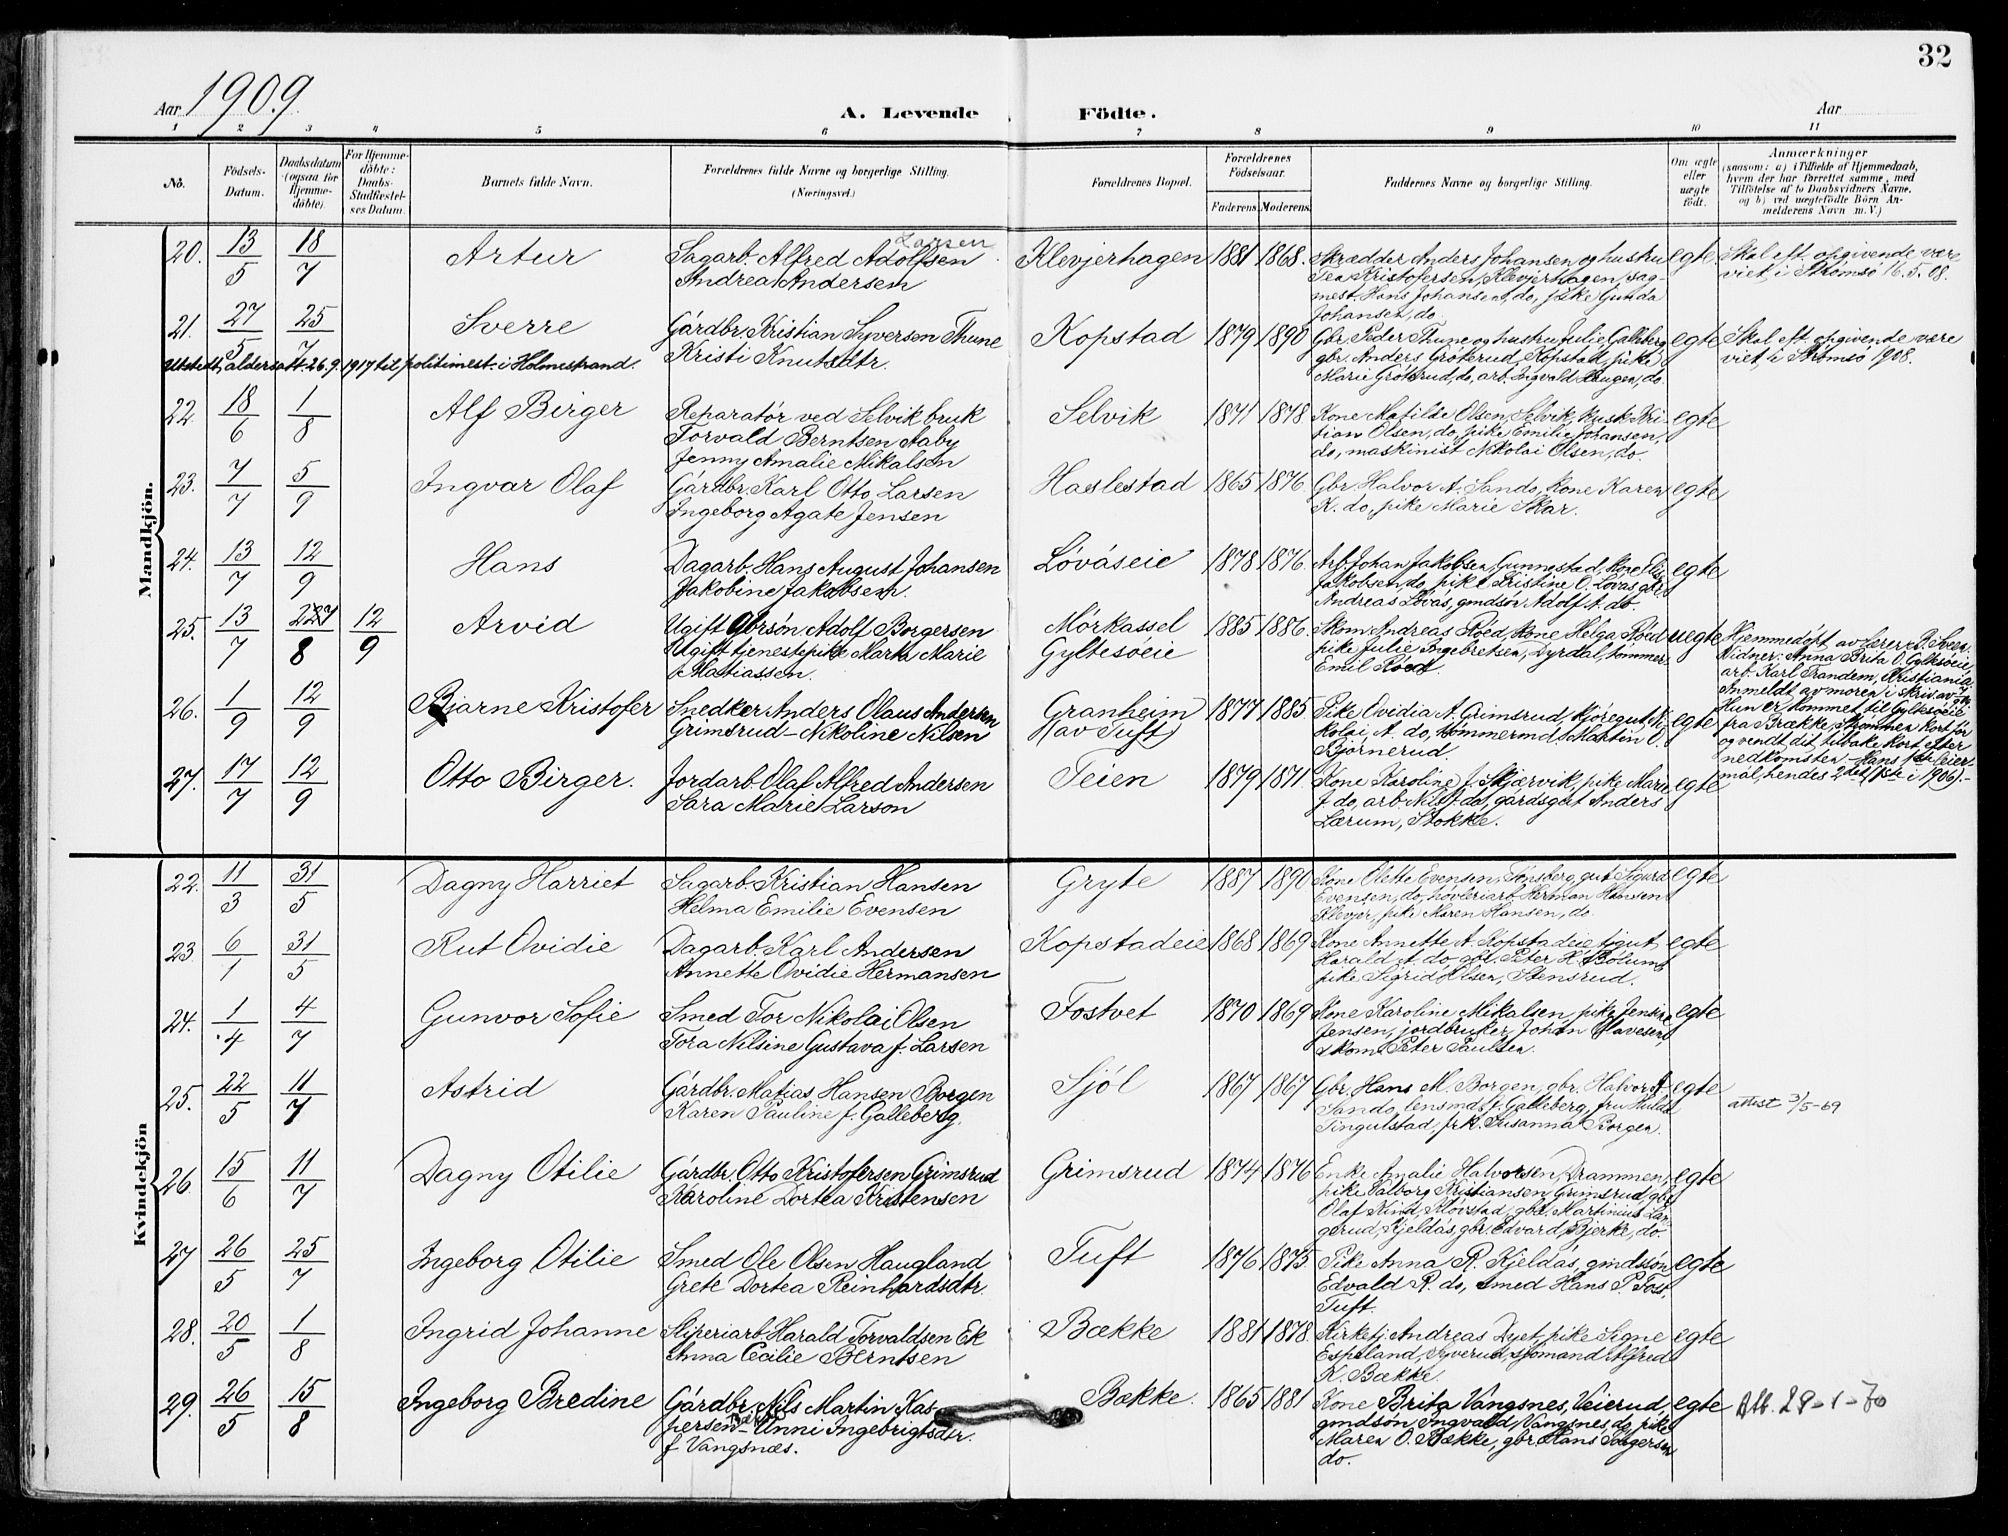 32
Aar 1909.
A. Levende Födte.
Aar
1 2 3 4 5 6 7 8 9 10 11
No.
Födsels-Datum.
Daabsdatum (ogsaa for Hjemme-döbte).
For Hjemme-döbte: Daabs-Stadfæstel-ses Datum.
Barnets fulde Navn.
Forældrenes fulde Navne og borgerlige Stilling.
(Næringsvei.)
Forældrenes Bopæl.
Forældrenes Födselsaar.
Faderens. Moderens.
Faddernes Navne og borgerlige Stilling.
Om ægte eller uægte födt.
Anmærkninger
(saasom: a) i Tilfælde af Hjemmedaab,
hvem der har forrettet samme, med
Tilföielse af to Daabsvidners Navne.
og b) ved uægtefödte Börn An-
melderens Navn m. V.)
Mandkjön.
20. 13/5 18/7 Artur
Larsen
Sagarb. Alfred Adolfsen
Andrea Andersen
Klevjerhagen 1881 1868.
Skrædder Anders Johansen og hustru
Tea Kristofersen, Klevjerhagen, sag-
mest. Hans Johansen, do, pike Gunda
Johansen, do.
egte.
Skal eft. opgivende være
viet i Strømsø 16.5.08.
21. 27/5 25/7 Sverre
Gårdbr. Kristian Syversen Thune
Kristi Knutsdtr.
Kopstad 1879 1890
Gbr. Peder Thune og hustru Julie Galleberg
gbr. Anders Grøterud, Kopstad, pike
Marie Grøterud, do, arb. Ingvald Haugen, do.
egte
Skal eft. opgivende være
viet i Strømsø 1908.
Utstedt aldersatt. 26.9.1917 til politimest. i Holmestrand.
22. 18/6 1/8 Alf Birger
Reparatør ved Selvik bruk
Torvald Berntsen Aaby
Jenny Amalie Mikalsen
Selvik 1871 1878
Kone Matilde Olsen, Selvik, kusk Kri-
stian Olsen, do, pike Emilie Johansen,
do, maskinist Nikolai Olsen, do.
egte
23. 7/7 5/9 Ingvar Olaf
Gårdbr. Karl Otto Larsen
Ingeborg Agate Jensen
Haslestad 1865 1876
Gbr. Halvor A. Sando, kone Karen
K. do, pike Marie Skar.
egte
24. 13/7 12/9 Hans
Dagarb. Hans August Johansen
Jakobine Jakobsen.
Lövåseie 1878 1876.
Arb. Johan Jakobsen, Gunnestad, kone
Jakobsen, do, pike Kristine O. Lövås, gbr.
Andreas Lövås, gmdsøn Adolf A. do.
egte
25. 13/7 8 12/9 Arvid
Ugift Gbrsøn. Adolf Borgersen
Ugift tjenestepike Marta Marie
Matiassen.
Mørkassel
Gyltesøeie
1885 1886.
Skom. Andreas Röed, kone Helga Röed
pike Julie Ingebretsen, Dyrdal, tømmer.
Emil Röed.
uegte
Hjemmedøpt av Lærer R. Sveen.
Vidner: Anna Brita O. Gyltesøeie,
arb. Karl Trandem, Kristiania
Anmeldt av moren i skriv. av
Hun er kommet til Gyltesøeie
fra Brække, Strømmen kort før
og vendt dit tilbake kort efter
nedkomsten – Hans 1ste leier-
mål, hendes 2det (1ste i 1906). –
26. 1/9 12/9 Bjarne Kristofer
Snedker Anders Olaus Andersen
Grimsrud – Nikoline Nilsen
Granheim
(av Tuft)
1877 1885
Pike Ovidia A. Grimsrud, kjøregut, Ni-
kolai, A. do, tømmermd. Martin O.
Bjørnerud.
egte
27. 17/7 12/9 Otto Birger.
Jordarb. Olaf Alfred Andersen
Sara Marie Larson
Teien 1879 1871.
Kone Karoline J. Skjærvik, pike Marie
J. do, arb. Nils J. do, gårdsgut Anders
Lærum, Stokke.
egte
Kvindekjön
22. 11/3 31/5 Dagny Harriet
Sagarb. Kristian Hansen
Helma Emilie Evensen
Gryte 1887 1890
Kone Olette Evensen, Tønsberg, gut Sigurd
Evensen, do, høvleriarb. Herman Hansen
Klevjer, pike Maren Hansen, do.
egte
23 6/1 31/5 Rut Ovidie
Dagarb. Karl Andersen
Annette Ovidie Hermansen
Kopstadeie 1868 1869
Kone Annette A. Kopstadeie, gut
Harald A. do, gbr. Peter H. Bölum,
pike Sigrid Olsen, Stensrud.
egte
24. 1/4 4/7 Gunvor Sofie
Smed Tor Nikolai Olsen
Tora Nilsine Gustava f. Larsen
Fostvet 1870 1869
Kone Karoline Mikalsen, pike Jensine
Jensen, jordbruker Johan Olavesen,
skom. Peter Paulsen.
egte
25. 22/5 11/7 Astrid
Gårdbr. Matias Hansen Borgen
Karen Pauline f. Galleberg.
Sjøl 1867 1867
Gbr. Hans M. Borgen, gbr. Halvor A.
Sando, lensmd. J. Galleberg, fru Hulda
Tingulstad, frk. Susanna Borgen.
egte
attest 3/5-69
26 15/6 11/7 Dagny Otilie
Gårdbr. Otto Kristofersen Grimsrud
Karoline Dortea Kristensen
Grimsrud 1874 1876
Enke Amalie Halvorsen, Drammen,
pike Valborg Kristiansen, Grimsrud, gbr.
Olaf Kind, Kløvstad, gbr. Martinius Lan-
gerud, Kjeldås, gbr. Edvard Bjerke, do.
egte
27 26/5 25/7 Ingeborg Otilie
Smed Ole Olsen Haugland
Grete Dortea Reinhardsdtr.
Tuft 1876 1875
Pike Anna R. Kjeldås, gmdsøn
Edvald R. do, smed Hans P. Foss,
Tuft.
egte
28. 20/5 1/8 Ingrid Johanne
Sliperiarb. Harald Torvaldsen Ek
Anna Cecilie Berntsen
Bække 1881 1878.
Kirketj. Andreas Dyet, pike Signe
Espeland, Syverud, sjømand Alfred
K. Bække.
egte
29. 26/5 15/8 Ingeborg Bredine
Gårdbr. Nils Martin Kas-
persen Bække – Unni Ingebrigtsdtr.
f. Vangsnæs.
Bække. 1865 1881
Kone Brita Vangsnes, Veierud,
gmdsøn Ingvald Vangsnes, do, pike
Maren O. Bække, gbr. Hans Borgersen
do.
egte
Att. 29-1-70